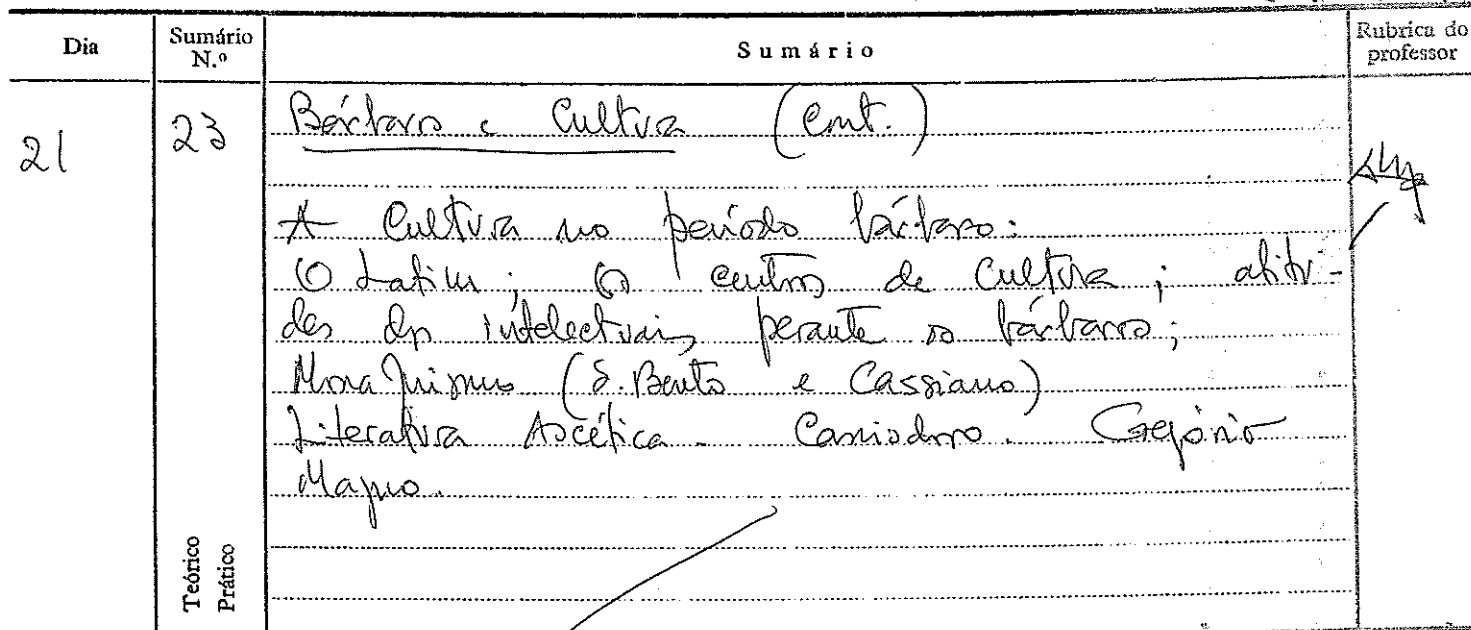 Dia
Sumário
N.º
Sumário
Rubrica do
professor
21
23
Bárbaros e Cultura (Cont.)
A Cultura no período bárbaro:
O Latim; Os centros de Cultura; atitu-
des dos intelectuais perante os bárbaros;
Monaquismo (S. Bento e Cassiano)
Literatura Ascética. Cassiodoro. Gregório
Magno.
Teórico
Prático